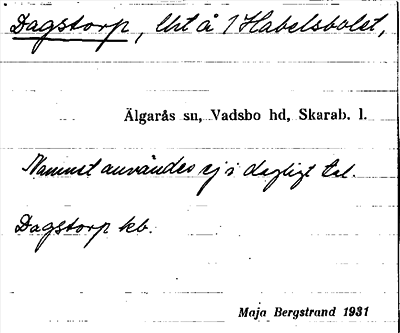 Dagstorp, lht å 1 Habelsbolet,
Älgarås sn, Vadsbo hd, Skarab. l.
Namnet användes ej i dagligt tal.
Dagstorp kb.
Maja Bergstrand 1931